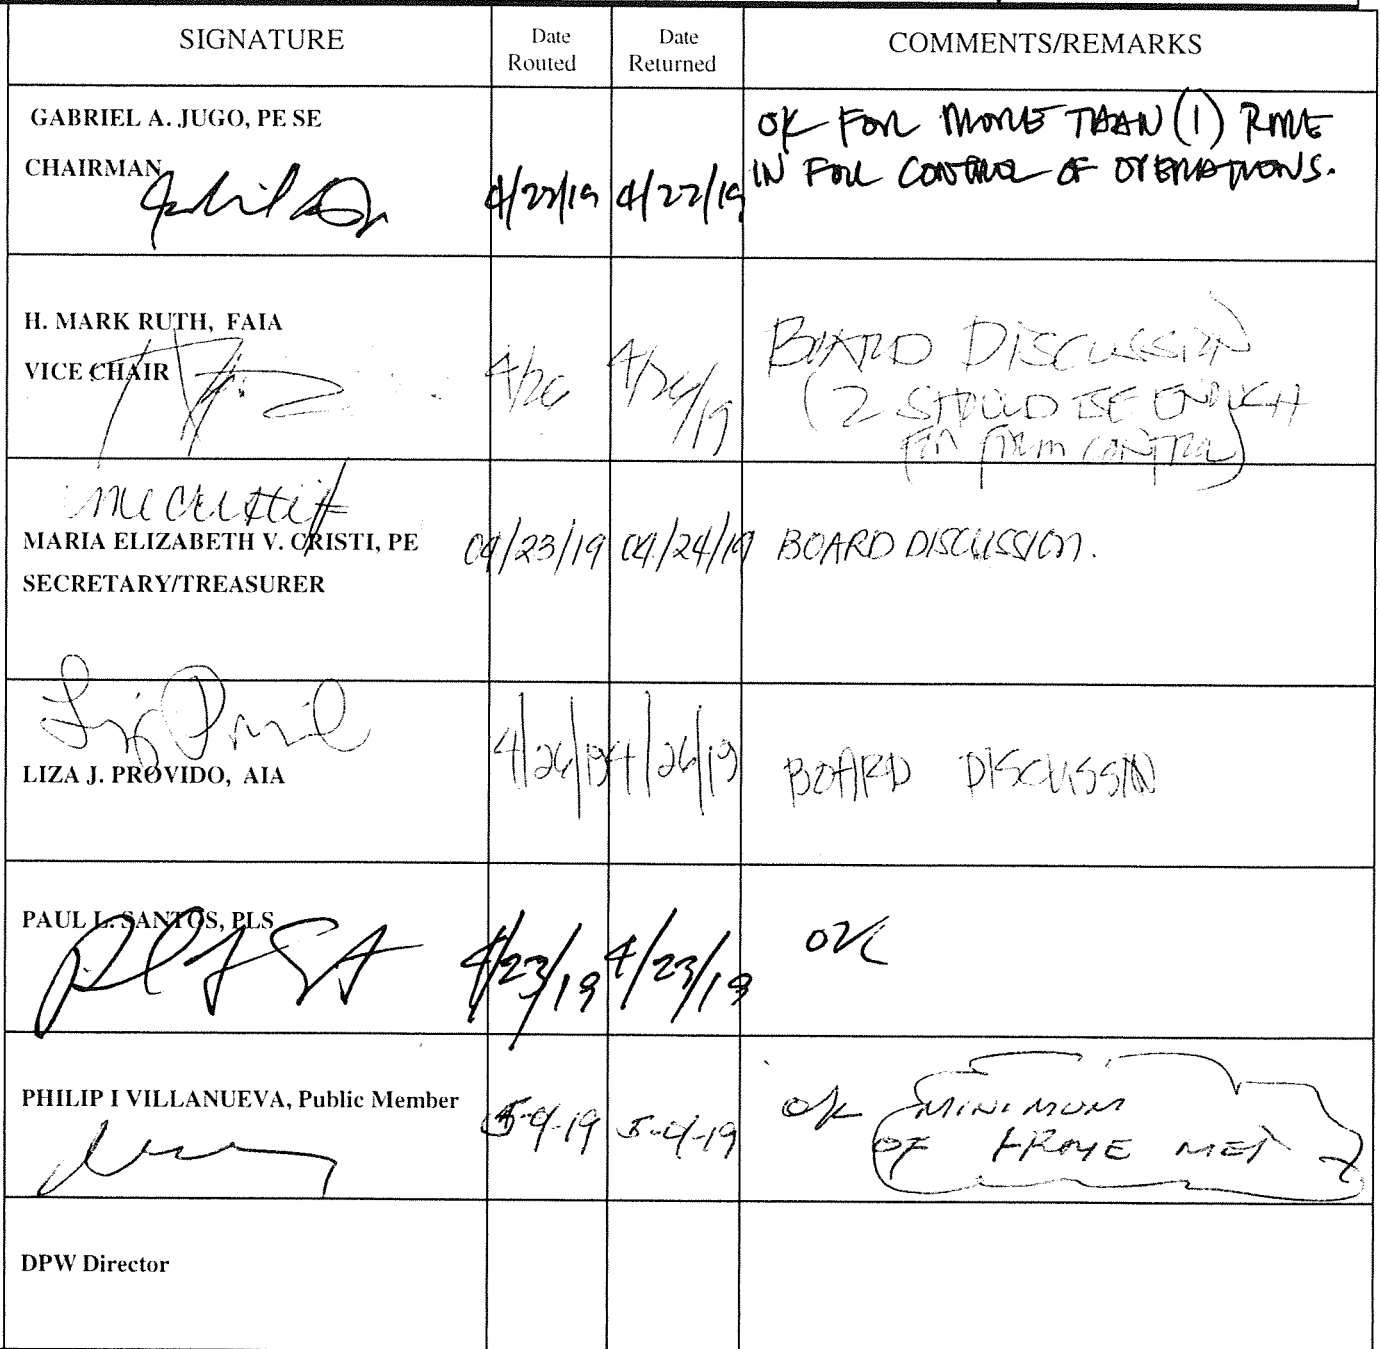 SIGNATURE Date Routed Date Returned COMMENTS/REMARKS
GABRIEL A. JUGO, PE SE
CHAIRMAN
4/22/19 4/22/19
OK FOR MORE THAN (1) RME
IN FULL CONTROL OF OPERATIONS.
H. MARK RUTH, FAIA
VICE CHAIR
4/26 4/26/19
BOARD DISCUSSION
(2 SHOULD BE ENOUGH
FOR FIRM CONTROL)
MARIA ELIZABETH V. CRISTI, PE
SECRETARY/TREASURER
04/23/19 04/24/19 BOARD DISCUSSION.
LIZA J. PROVIDO, AIA
4/26/19 4/26/19 BOARD DISCUSSIN
PAUL L. SANTOS, PLS
4/23/19 4/23/19 OK
PHILIP I VILLANUEVA, Public Member
5-9-19 5-9-19 OK MINIMUM
OF MET
DPW Director